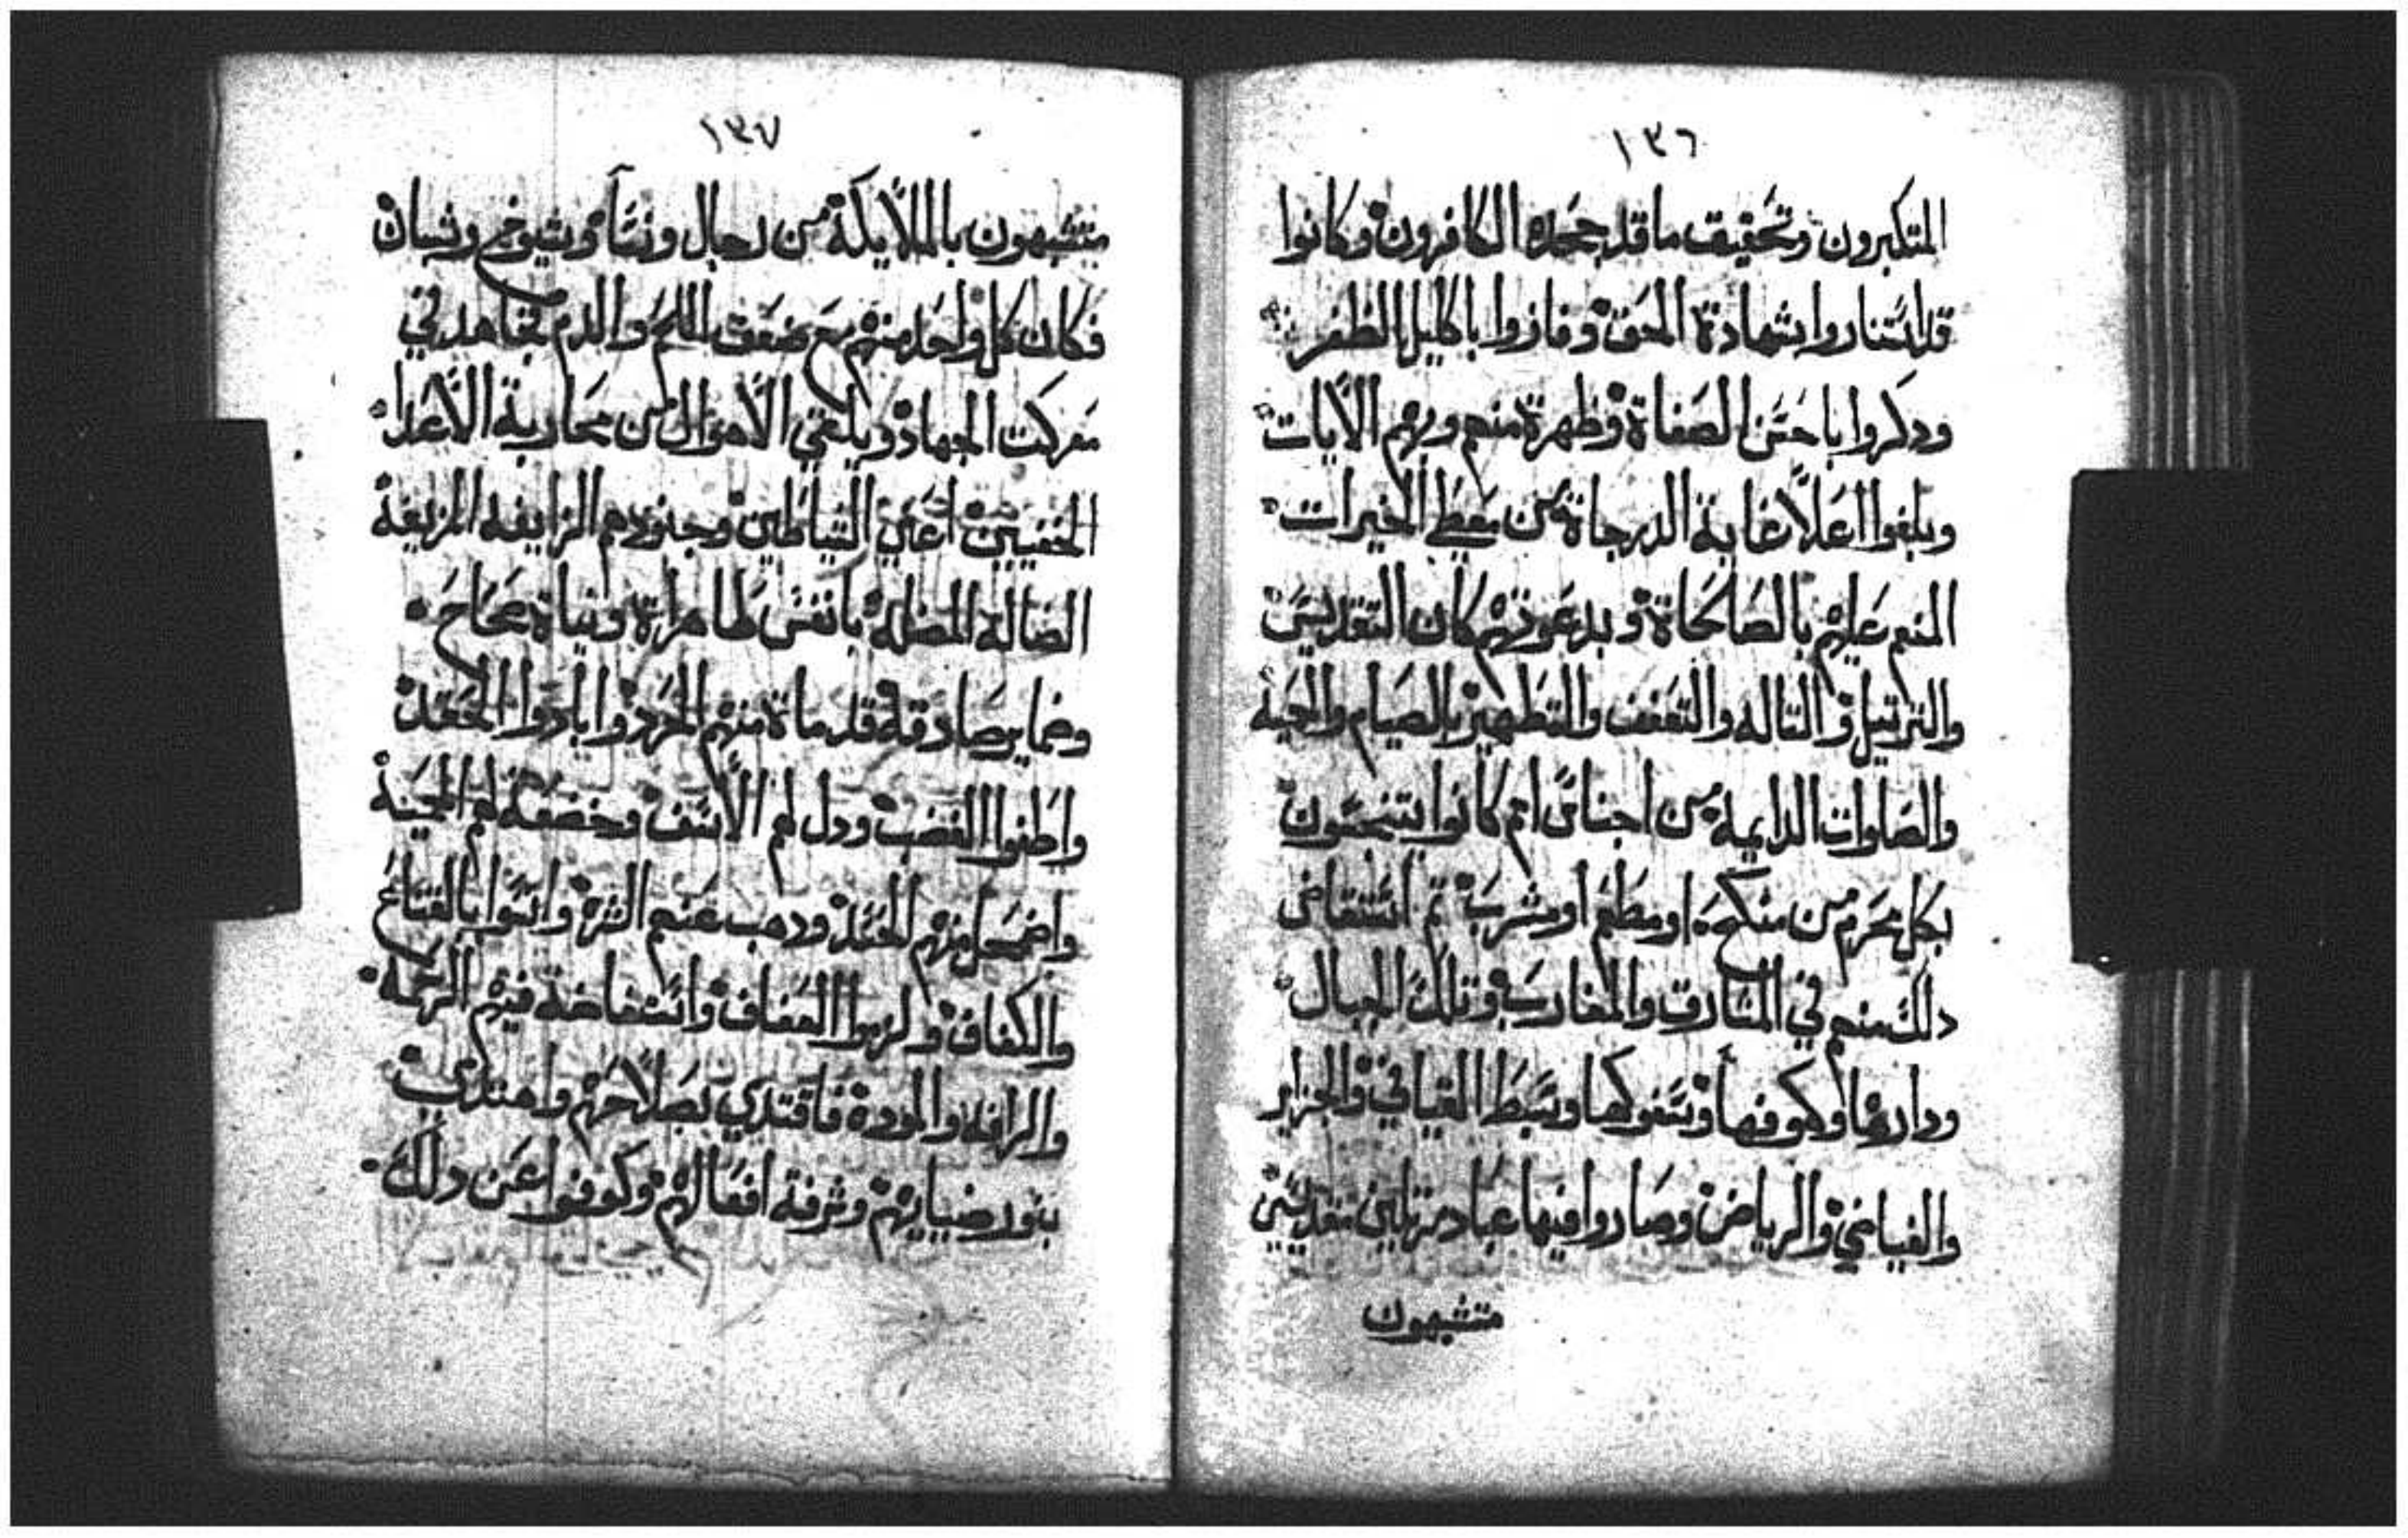 ١٣٦
المتكبرون وتحقيق ما قد جحده الكافرون وكانوا
قد استناروا بشهادة الحق وفازوا باكليل الظفر
ودكروا باحسن الصفاة وظهرة منهم وبهم الايات
وبلغوا اعلا غاية الدرجاة من معطي الخيرات
المنعم عليهم بالصالحاة وبدعوتهم كان التقديس
والترتيل والتاله والتعفف والتطهير بالصيام والحمية
والصلوات الدايمه من اجناس امم كانوا يتنجسون
بكل محرم من منكح او مطعم او مشرب ثم استفاض
دلك منهم في المشارق والمغارب وتلك الجبال
وكهوفها وسفوكها وسبط الفيافي والجزاير
والغياض والرياض وصاروا فيها عباد مرتلين مقدسين
متشبهون
١٣٧
متشبهون بالملايكة من رجال ونسآ وشيوخ وشبان
فكان كل واحد منهم مع ضعف اللحم والدم يجاهد في
معركت الجهاد ويلقي الاهوال من محاربة الاعدا
الخفيين اعني الشياطين وجنودهم الزايفه المزيغة
الضالة المضلة بانفس طاهراة ونياة صحاح
وضماير صادقة قد ماة منهم الحرد وابادوا الحقد
واطفوا الغضب ودل لهم الاسف وخضعة لهم الحمية
واضمحل منهم الحسد ودهب عنهم الشره واتسوا بالقناع
والكفاف ولزموا العفاف واستفاضة فيهم الرحمه
والرافه والمودة فاقتدي بصلاحهم واهتدي
بنور ضيايهم وشرفة افعالهم وكوفوا عن دلك